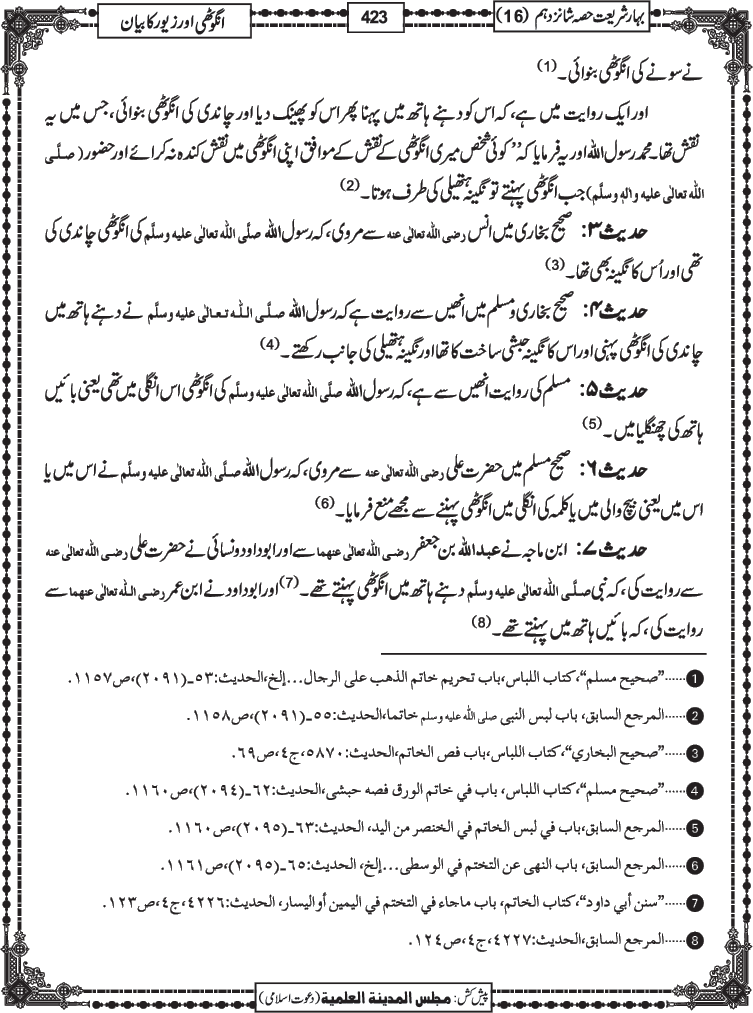 بہارِ شریعت حصہ شانزدہم (16)
423
انگوٹھی اور زیور کا بیان
نے سونے کی انگوٹھی بنوائی۔(1)
اور ایک روایت میں ہے، کہ اس کو دہنے ہاتھ میں پہنا پھر اس کو پھینک دیا اور چاندی کی انگوٹھی بنوائی، جس میں یہ
نقش تھا۔ محمد رسول اللہ اور یہ فرمایا کہ ’’کوئی شخص میری انگوٹھی کے نقش کے موافق اپنی انگوٹھی میں نقش کندہ نہ کرائے اور حضور (صلَّی
اللہ تعالٰی علیہ والہٖ وسلَّم) جب انگوٹھی پہنتے تو نگینہ ہتھیلی کی طرف ہوتا۔(2)
حدیث ۳: صحیح بخاری میں انس رضی اللہ تعالٰی عنہ سے مروی، کہ رسول اللہ صلَّی اللہ تعالٰی علیہ وسلَّم کی انگوٹھی چاندی کی
تھی اور اُس کا نگینہ بھی تھا۔(3)
حدیث ۴: صحیح بخاری و مسلم میں انھیں سے روایت ہے کہ رسول اللہ صلَّی اللہ تعالٰی علیہ وسلَّم نے دہنے ہاتھ میں
چاندی کی انگوٹھی پہنی اور اس کا نگینہ حبشی ساخت کا تھا اور نگینہ ہتھیلی کی جانب رکھتے۔(4)
حدیث ۵: مسلم کی روایت انھیں سے ہے، کہ رسول اللہ صلَّی اللہ تعالٰی علیہ وسلَّم کی انگوٹھی اس انگلی میں تھی یعنی بائیں
ہاتھ کی چھنگلیا میں۔(5)
حدیث ۶: صحیح مسلم میں حضرت علی رضی اللہ تعالٰی عنہ سے مروی، کہ رسول اللہ صلَّی اللہ تعالٰی علیہ وسلَّم نے اس میں یا
اس میں یعنی بیچ والی میں یا کلمہ کی انگلی میں انگوٹھی پہننے سے مجھے منع فرمایا۔(6)
حدیث ۷: ابن ماجہ نے عبداللہ بن جعفر رضی اللہ تعالٰی عنہما سے اور ابو داود و نسائی نے حضرت علی رضی اللہ تعالٰی عنہ
سے روایت کی، کہ نبی صلَّی اللہ تعالٰی علیہ وسلَّم دہنے ہاتھ میں انگوٹھی پہنتے تھے۔(7) اور ابو داود نے ابن عمر رضی اللہ تعالٰی عنہما سے
روایت کی، کہ بائیں ہاتھ میں پہنتے تھے۔(8)
1......”صحیح مسلم“، کتاب اللباس، باب تحریم خاتم الذھب علی الرجال...إلخ، الحدیث: ٥٣ـ(٢٠٩١)، ص١١٥٧.
2......المرجع السابق، باب لبس النبی صلی اللہ علیہ وسلم خاتما، الحدیث: ٥٥ـ(٢٠٩١)، ص١١٥٨.
3......”صحیح البخاري“، کتاب اللباس، باب فص الخاتم، الحدیث: ٥٨٧٠، ج٤، ص٦٩.
4......”صحیح مسلم“، کتاب اللباس، باب في خاتم الورق فصہ حبشی، الحدیث: ٦٢ـ(٢٠٩٤)، ص١١٦٠.
5......المرجع السابق، باب في لبس الخاتم في الخنصر من الید، الحدیث: ٦٣ـ(٢٠٩٥)، ص١١٦٠.
6......المرجع السابق، باب النھی عن التختم في الوسطی...إلخ، الحدیث: ٦٥ـ(٢٠٩٥)، ص١١٦١.
7......”سنن أبي داود“، کتاب الخاتم، باب ماجاء في التختم في الیمین أوالیسار، الحدیث: ٤٢٢٦، ج٤، ص١٢٣.
8......المرجع السابق، الحدیث: ٤٢٢٧، ج٤، ص١٢٤.
پیش کش: مجلس المدینۃ العلمیۃ (دعوت اسلامی)